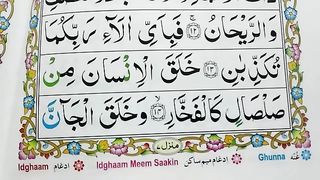 وَالرَّيْحَانُ ﴿١٢﴾ فَبِاَيِّ اٰلَآءِ رَبِّكُمَا
تُكَذِّبٰنِ ﴿١٣﴾ خَلَقَ الْاِنْسَانَ مِنْ
صَلْصَالٍ كَالْفَخَّارِ ﴿١٤﴾ وَخَلَقَ الْجَآنَّ
منزل ٧
Idghaam ادغام Idghaam Meem Saakin ادغام میم ساکن Ghunna غنہ